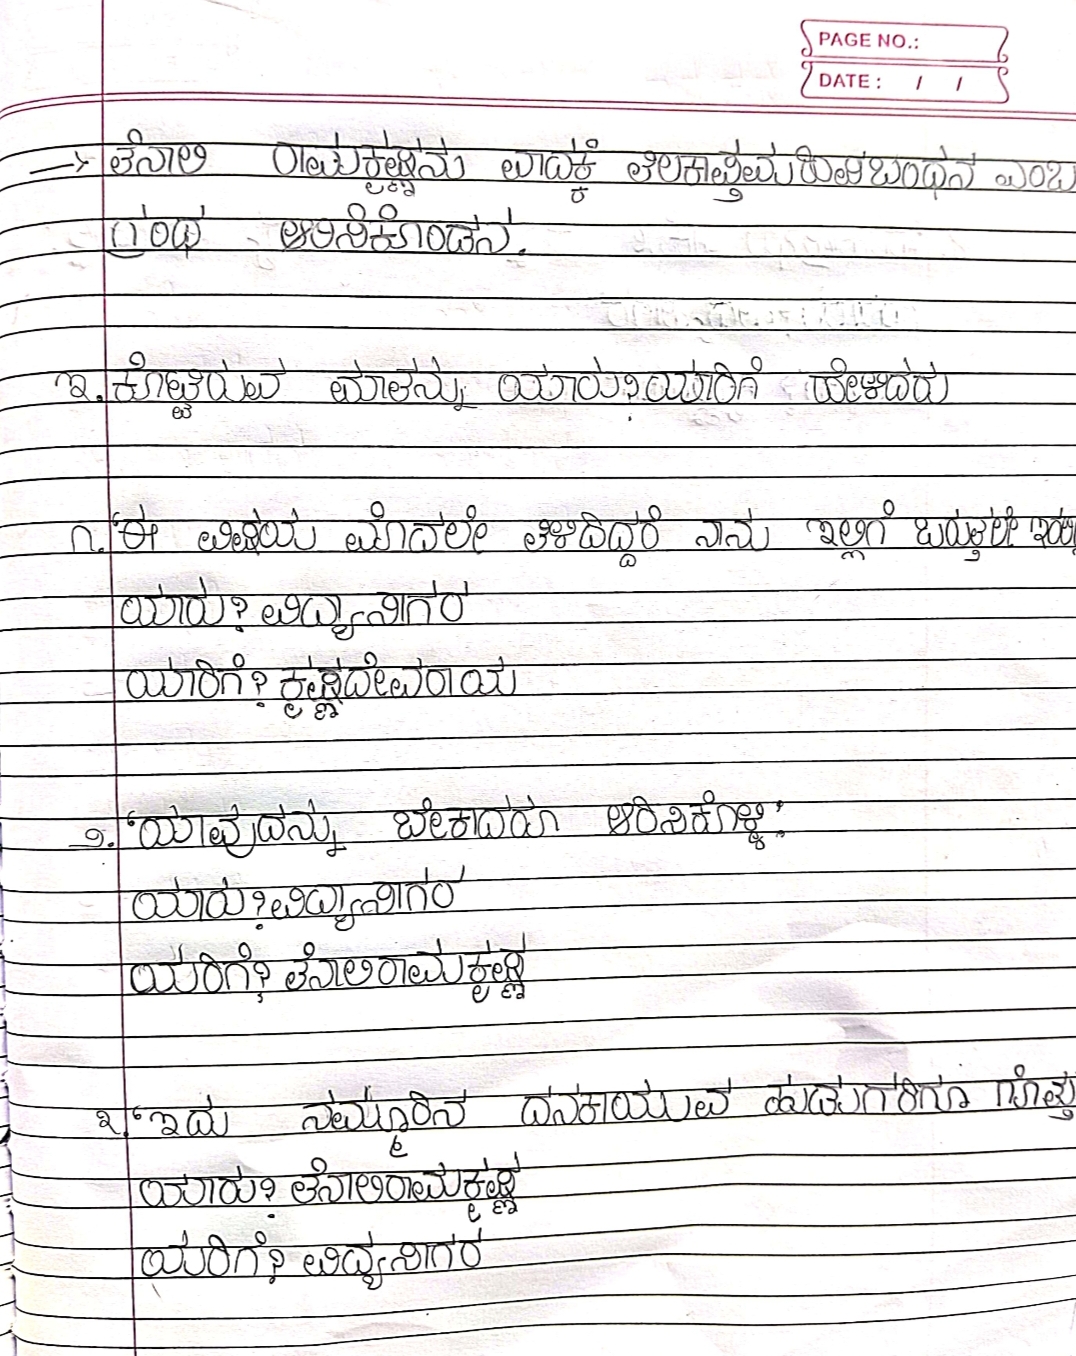 PAGE NO.:
DATE : / /
→ ತೆನಾಲಿ ರಾಮಕೃಷ್ಣನು ವಾದಕ್ಕೆ ತಿಲಕಾಷ್ಠಮಹಿಷಬಂಧನ ಎಂಬ
ಗ್ರಂಥ ಆರಿಸಿಕೊಂಡನು.
ಇ. ಕೊಟ್ಟಿರುವ ಮಾತನ್ನು ಯಾರು? ಯಾರಿಗೆ ಹೇಳಿದರು
೧. "ಈ ವಿಷಯ ಮೊದಲೇ ತಿಳಿದಿದ್ದರೆ ನಾನು ಇಲ್ಲಿಗೆ ಬರುತ್ತಲೇ
ಯಾರು? ವಿದ್ಯಾಸಾಗರ
ಯಾರಿಗೆ? ಕೃಷ್ಣದೇವರಾಯ
೨. "ಯಾವುದನ್ನು ಬೇಕಾದರೂ ಆರಿಸಿಕೊಳ್ಳಿ"
ಯಾರು? ವಿದ್ಯಾಸಾಗರ
ಯರಿಗೆ? ತೆನಾಲಿರಾಮಕೃಷ್ಣ
೩. "ಇದು ನಮ್ಮೂರಿನ ದನಕಾಯುವ ಹುಡುಗರಿಗೂ ಗೊತ್ತು
ಯಾರು? ತೆನಾಲಿರಾಮಕೃಷ್ಣ
ಯರಿಗೆ? ವಿದ್ಯಸಾಗರ